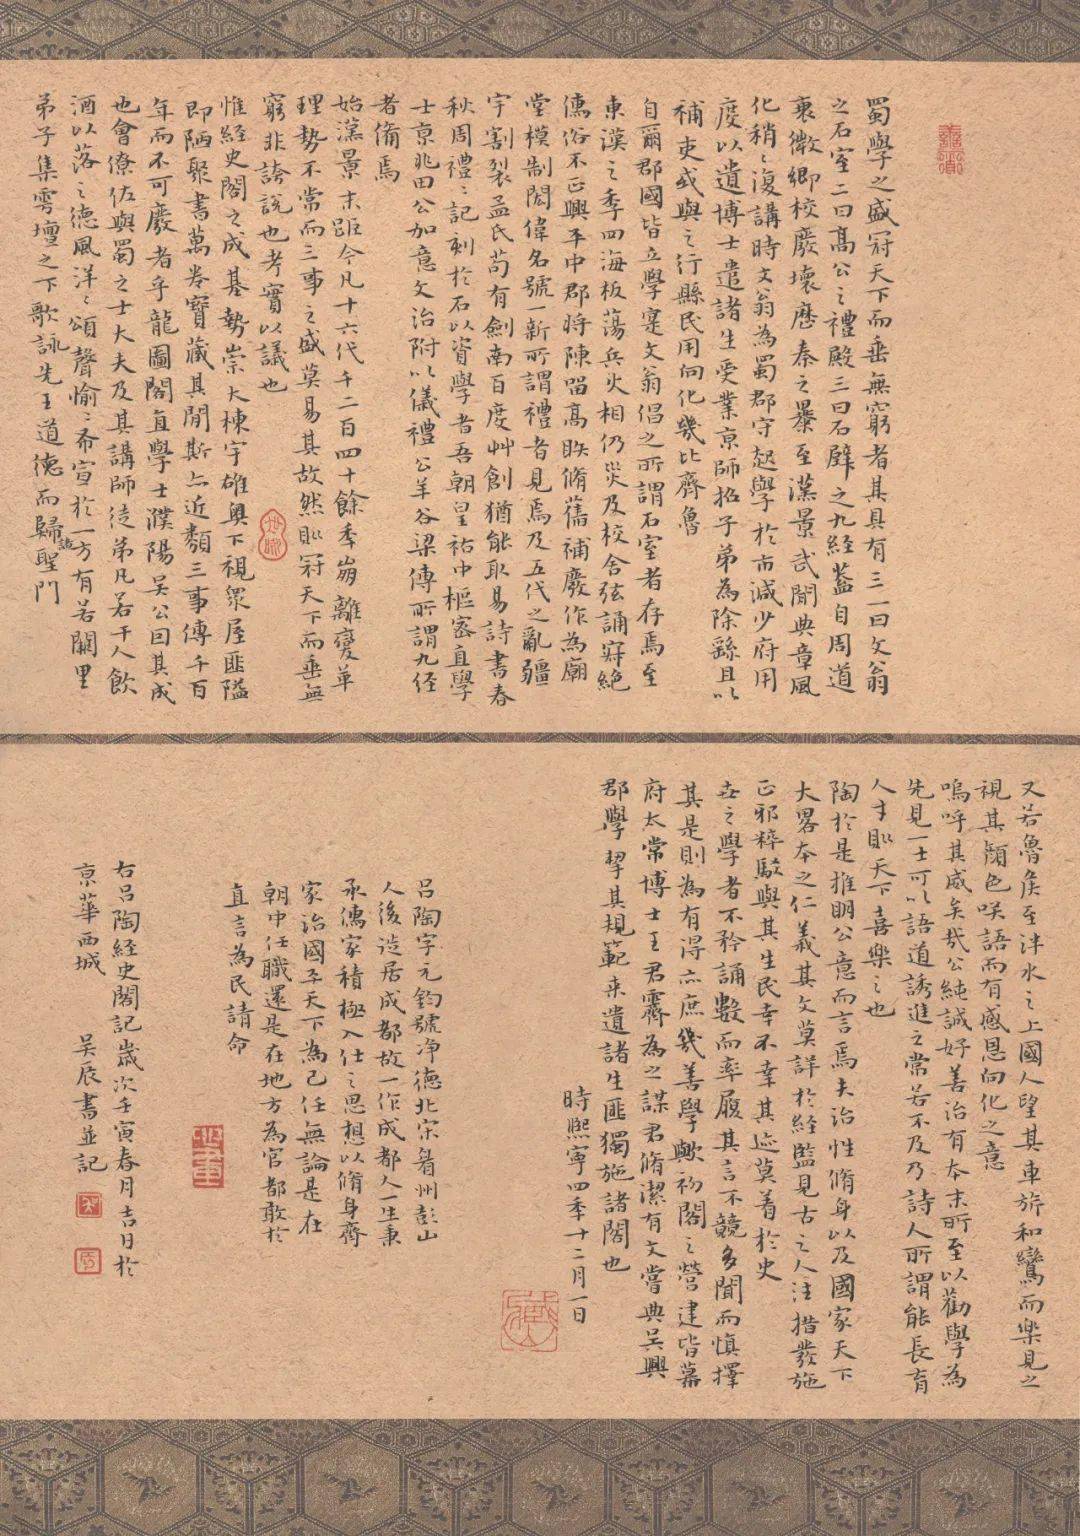 蜀學之盛冠天下而垂無窮者其具有三一曰文翁
之石室二曰高公之禮殿三曰石壁之九經蓋自周道
衰微鄉校廢壞歷秦之暴至漢景武間典章風
化稍稍復講時文翁為蜀郡守起學於市減少府用
度以遺博士遣諸生受業京師招子弟為除繇且以
補吏或與之行縣民用向化幾比齊魯
自爾郡國皆立學寔文翁倡之所謂石室者存焉至
東漢之季四海板蕩兵火相仍災及校舍弦誦寂絕
儒俗不正興平中郡將陳留高眹脩舊補廢作為廟
堂模制閎偉名號一新所謂禮者見焉及五代之亂疆
宇割裂孟氏苟有劍南百度艸創猶能取易詩書春
秋周禮禮記刻於石以資學者吾朝皇祐中樞密直學
士京兆田公加意文治附以儀禮公羊谷梁傳所謂九經
者備焉
始漢景末距今凡十六代千二百四十餘季崩離變革
理勢不常而三事之盛莫易其故然則冠天下而垂無
窮非誇說也考實以議也
惟經史閣之成基勢崇大棟宇雄奧下視眾屋匪隘
即陋聚書萬卷寶藏其閒斯亦近類三事傳千百
年而不可廢者乎龍圖閣直學士濮陽吳公因其成
也會僚佐與蜀之士大夫及其講師徒弟凡若干人飲
酒以落之德風洋洋頌聲愉愉布宣於一方有若闕里
弟子集雩壇之下歌詠先王道德而歸聖門
又若魯侯至泮水之上國人望其車旂和鸞而樂見之
視其顏色咲語而有感恩向化之意
嗚呼其盛矣哉公純誠好善治有本末所至以勸學為
先見一士可以語道誘進之常若不及乃詩人所謂能長育
人才則天下喜樂之也
陶於是推明公意而言焉夫治性脩身以及國家天下
大畧本之仁義其文莫詳於經監見古之人注措發施
正邪粹駁與其生民幸不幸其迹莫着於史
世之學者不矜誦數而率履其言不競多聞而慎擇
其是則為有得亦庶幾善學歟初閣之營建皆幕
府太常博士王君霽為之謀君脩潔有文嘗典吳興
郡學挈其規範来遺諸生匪獨施諸閣也
時熙寧四季十二月一日
呂陶字元鈞號净德北宋眉州彭山
人後造居成都故一作成都人一生秉
承儒家積極入仕之思想以脩身齊
家治國平天下為己任無論是在
朝中任職還是在地方為官都敢於
直言為民請命
右呂陶經史閣記歲次壬寅春月吉日於
京華西城 吳辰書並記